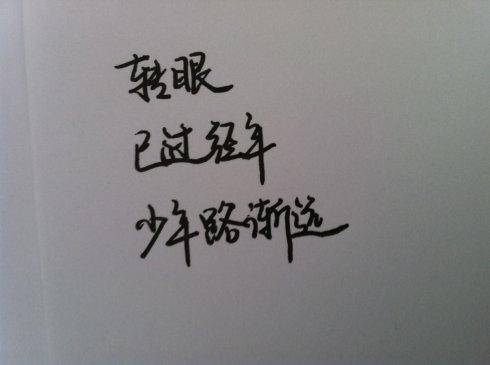 转眼
已过经年
少年路渐远